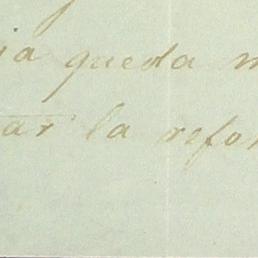 ia queda m
ar la refor